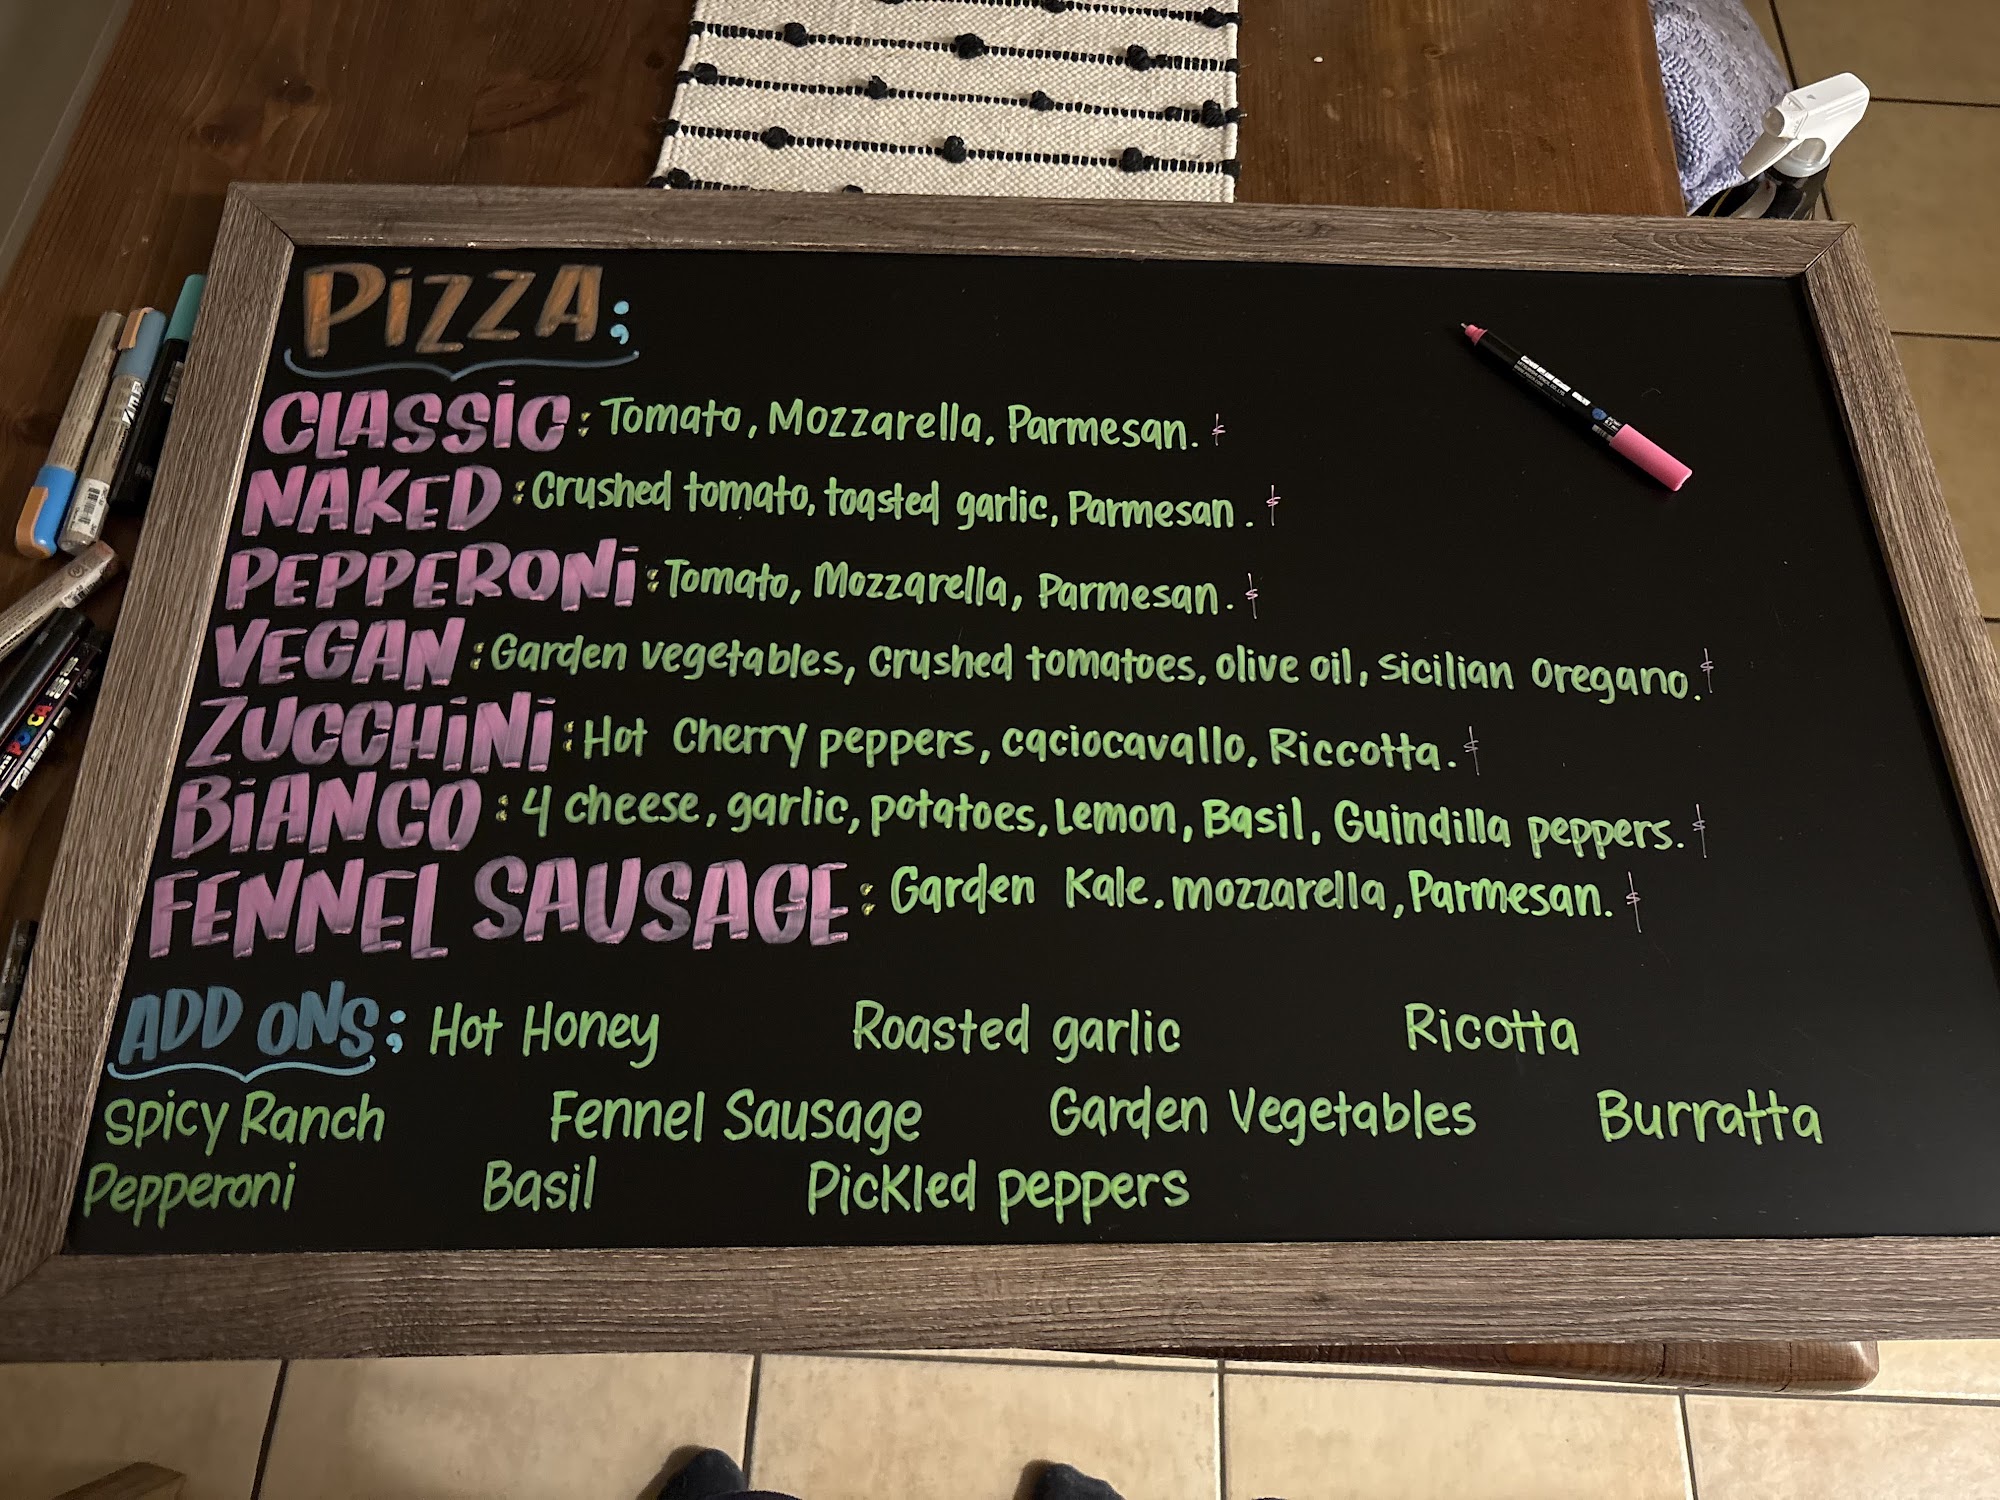 PiZZA;
CLASSiC: Tomato, Mozzarella, Parmesan. $
NAKED: Crushed tomato, toasted garlic, Parmesan. $
PEPPERONi: Tomato, Mozzarella, Parmesan. $
VEGAN: Garden vegetables, crushed tomatoes, olive oil, Sicilian oregano. $
ZUCCHiNi: Hot Cherry peppers, caciocavallo, Riccotta. $
BiANCO: 4 cheese, garlic, potatoes, Lemon, Basil, Guindilla peppers. $
FENNEL SAUSAGE: Garden Kale, mozzarella, Parmesan. $
ADD ONS; Hot Honey Roasted garlic Ricotta
Spicy Ranch Fennel Sausage Garden Vegetables Burratta
Pepperoni Basil Pickled peppers
POSCA